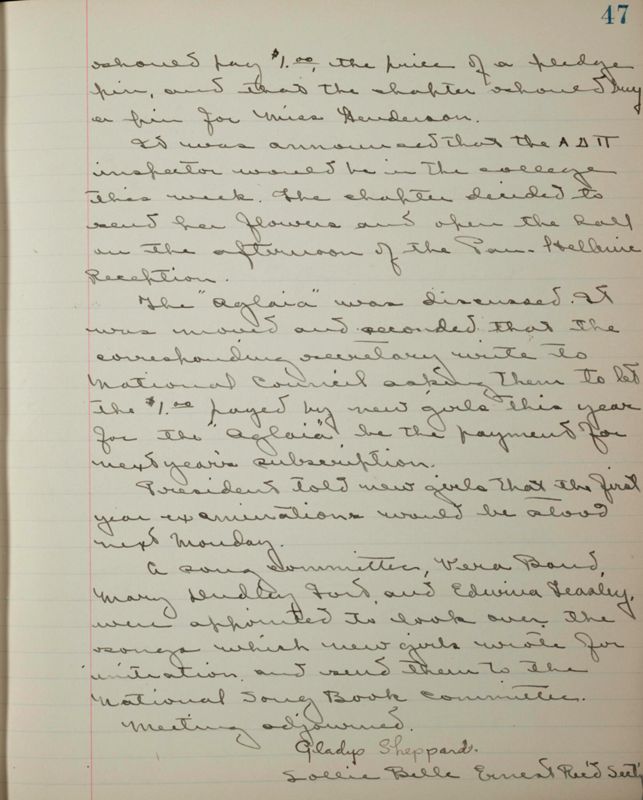 47
should pay $1.00, the price of a pledge
pin, and that the chapter should buy
a pin for Miss Henderson.
It was announced that the A Δ Π
inspector would be in the college
this week. The chapter decided to
send her flowers and open the hall
on the afternoon of the Pan-Hellenic
Reception.
The "Aglaia" was discussed. It
was moved and seconded that the
corresponding secretary write to
National Council asking them to let
the $1.00 payed by new girls this year
for the "Aglaia" be the payment for
next year's subscription.
President told new girls that the first
year examinations would be stood
next Monday.
A song committee, Vera Bond,
Mary Dudley Fort, and Edwina Teasley,
were appointed to look over the
songs which new girls wrote for
initiation and send them to the
National Song Book Committee.
Meeting adjourned.
Gladys Sheppard.
Sollie Belle Ernest Rec'd Sect'y